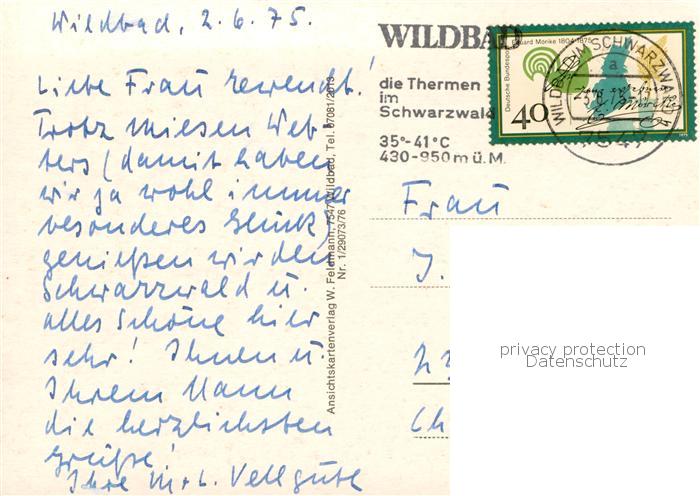 Wildbad, 2.6.75.
Liebe Frau
Trotz miesen Wet-
ters (damit haben
wir ja wohl immer
besonderes Glück)
genießen wir den
Schwarzwald u.
alles Schöne hier
sehr! Ihnen u.
Ihrem Mann
die herzlichsten
Grüße!
Ihre M + L.
Ansichtskartenverlag W. Feldmann, 7547 Wildbad, Tel. 07081/2013
Nr. 1/29073/76
WILDBAD
die Thermen
im
Schwarzwald
35°-41°C
430-950 m ü. M.
Eduard Mörike 1804-1875
Deutsche Bundespost
40
WILDBAD IM SCHWARZWALD
a
7547
Frau
J.
Ch
privacy protection
Datenschutz